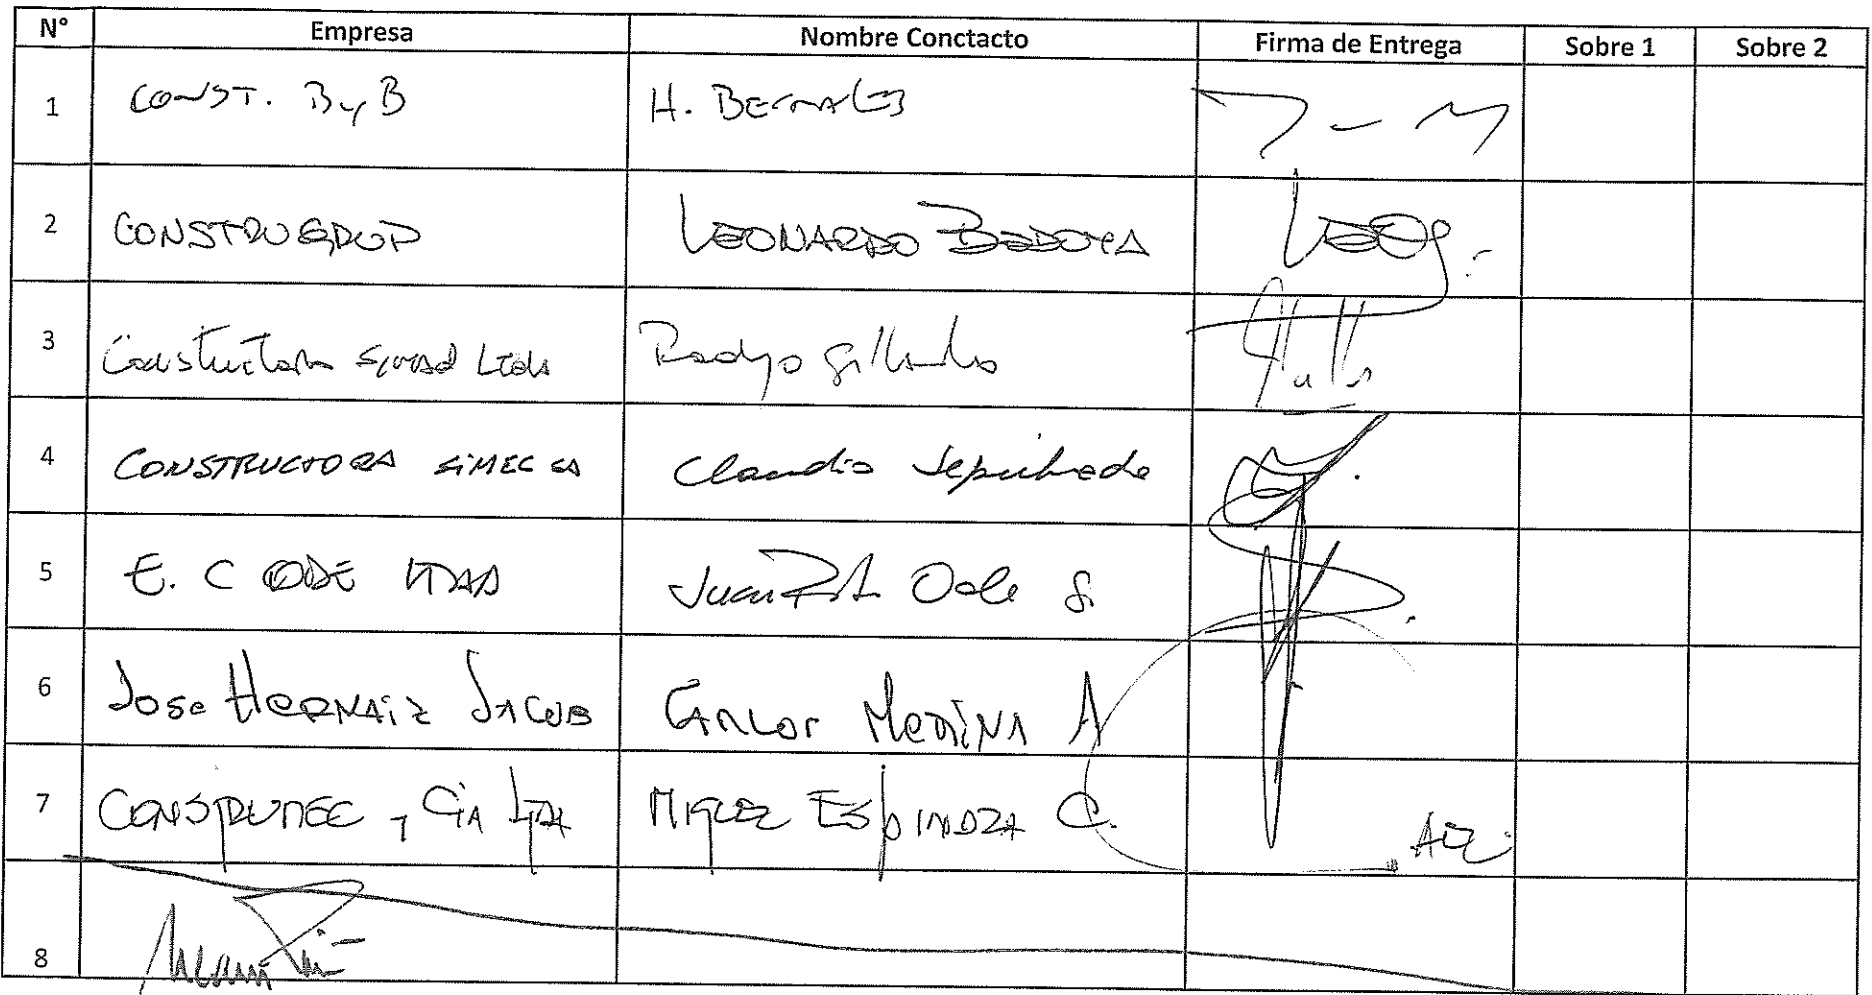 N° Empresa Nombre Conctacto Firma de Entrega Sobre 1 Sobre 2
1 CONST. B y B H. BERNALES
2 CONSTRUGRUP LEONARDO BEDOYA
3 Constructora Ltda
4 CONSTRUCTORA SIMEC SA Claudio Sepúlveda
5 E. C ODE LTDA Juan
6 Jose HERNAIZ JACOB CARLOS MEDINA A
7 y CIA LTDA MIGUEL ESPINOZA C.
8